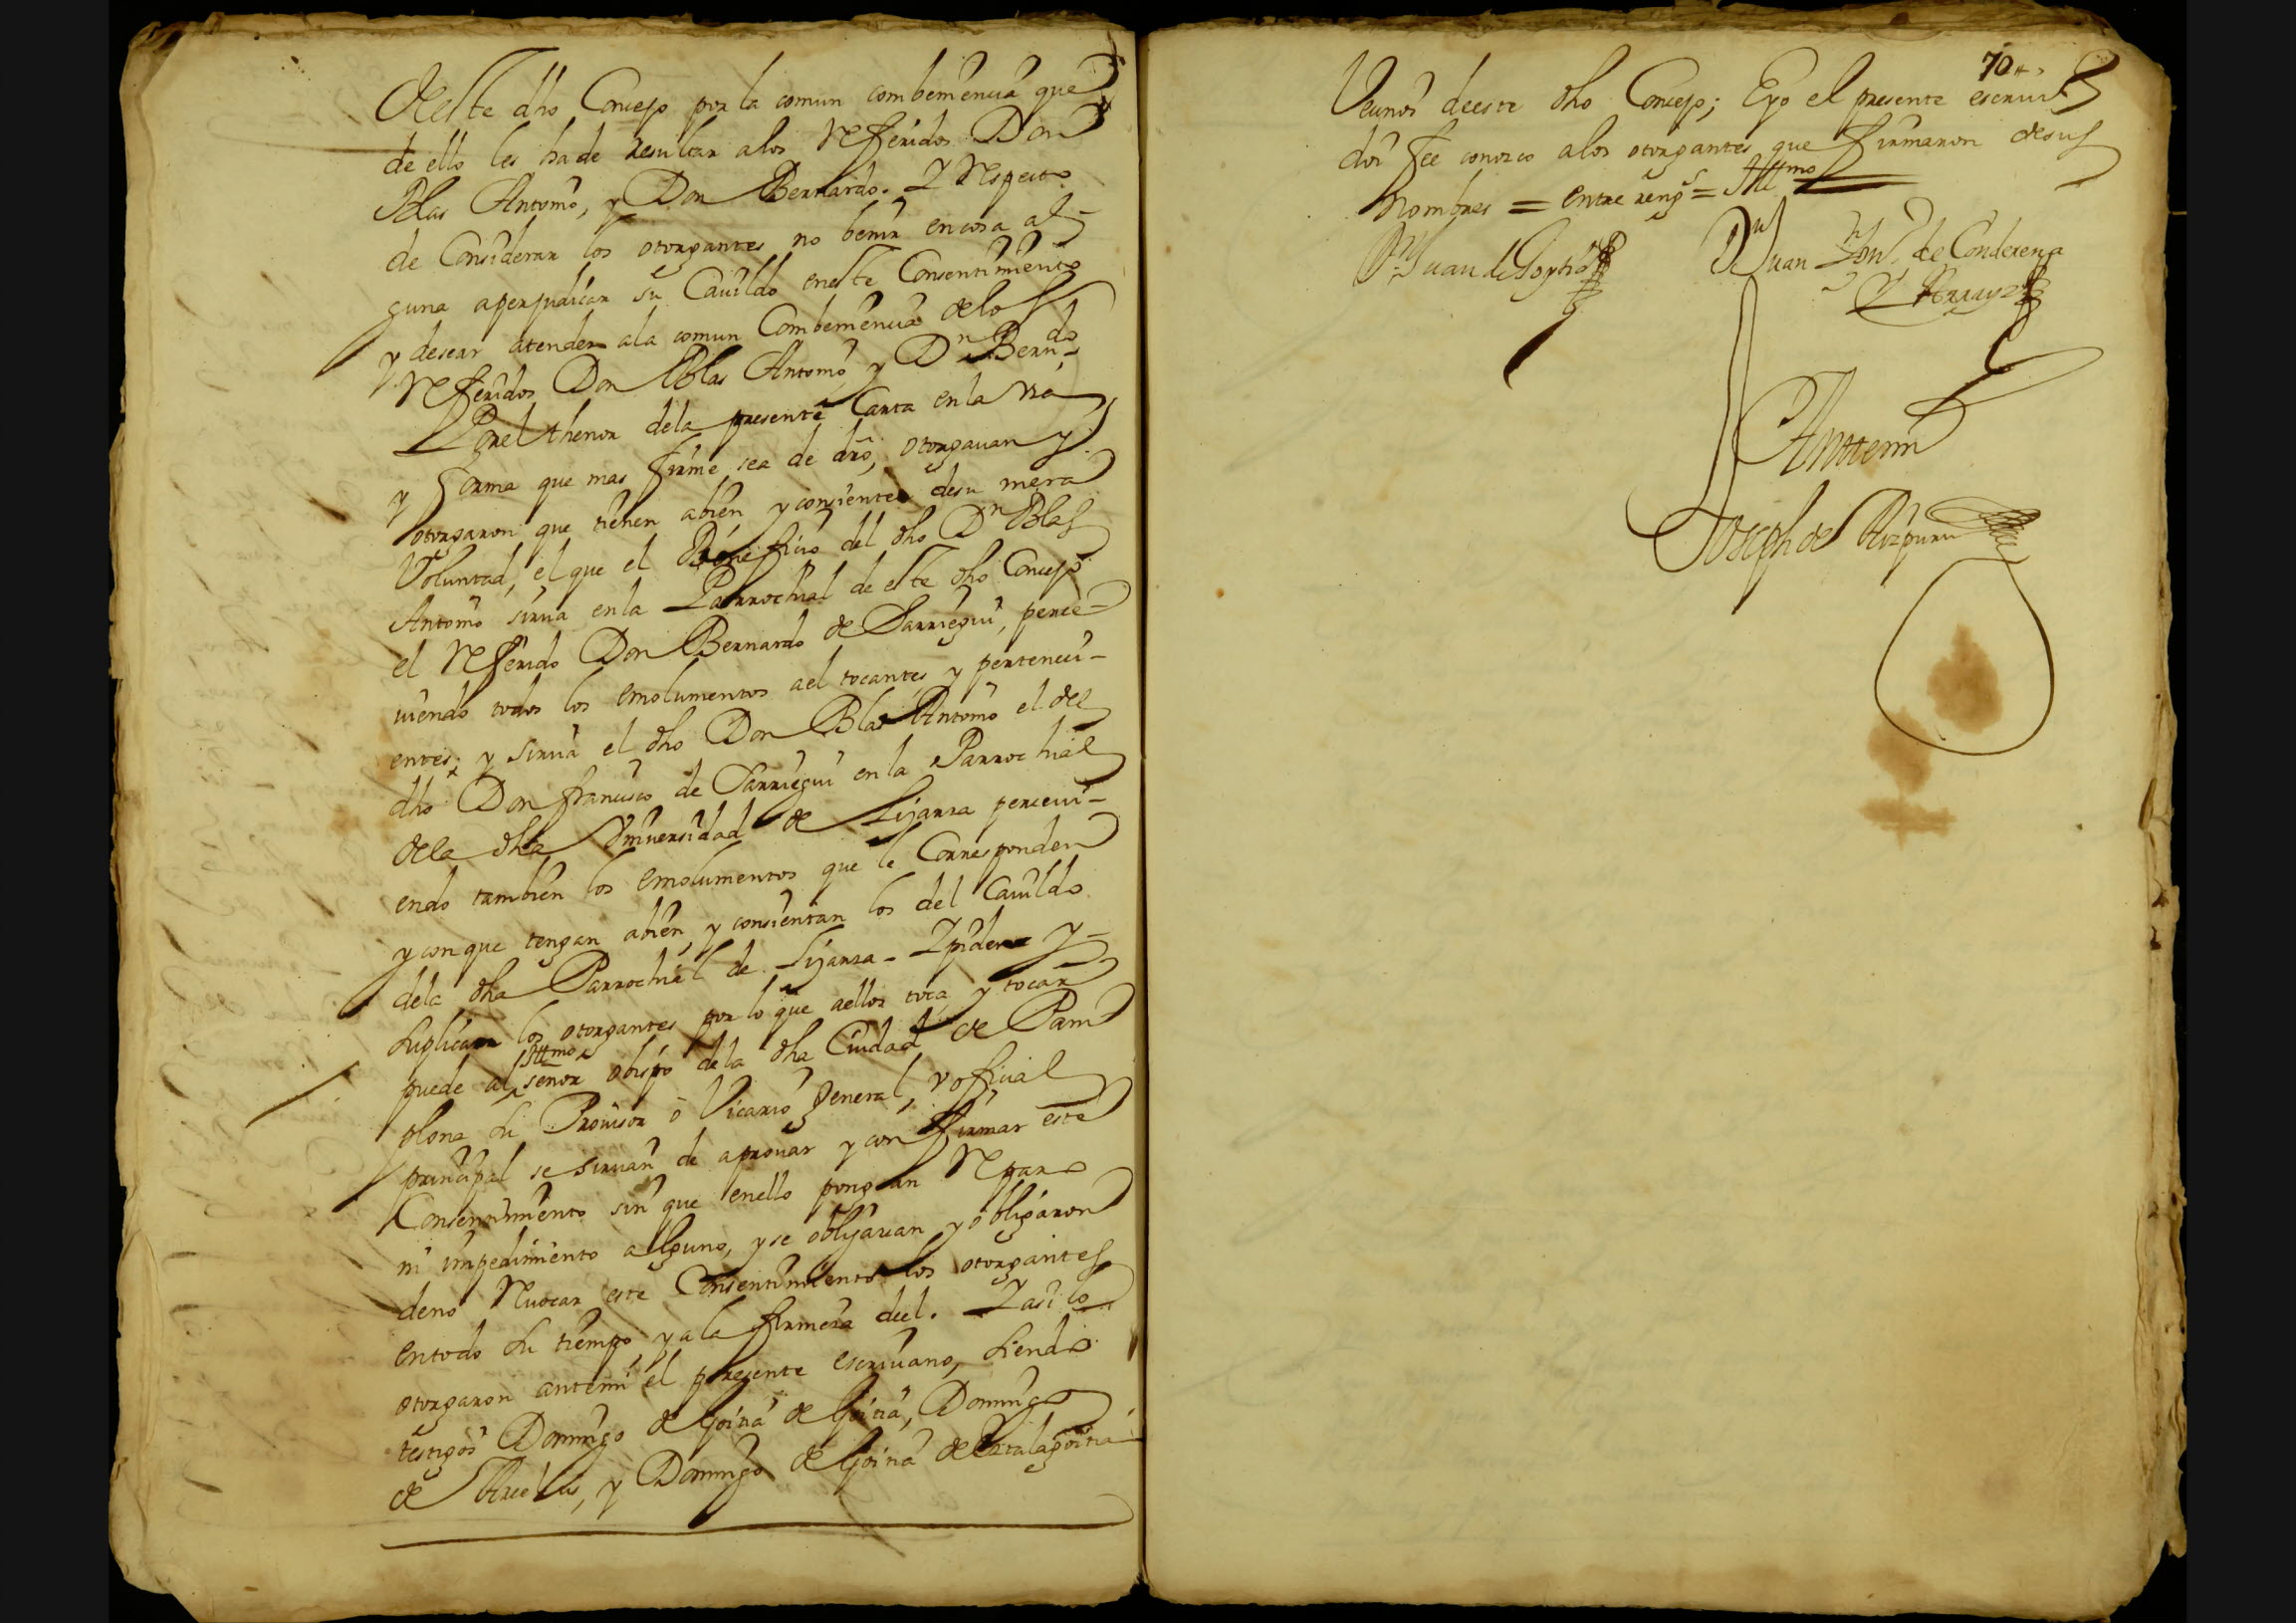 de este dho Concejo por la comun combenencia que
de ello les ha de resultar a los referidos Don
Blas Antonio, y Don Bernardo. Y respecto
de Considerar los otorgantes no benir en cosa al-
guna a perjudicar su Cavildo en este Consentimiento
y desear atender a la comun Combenencia de los
referidos Don Blas Antonio, y Dn Bern.do
Por el thenor de la presente Carta en la via
y forma que mas firme sea de dro, otorgavan y
otorgaron que tienen a bien y consienten de su mera
Voluntad, el que el Beneficio del dho Dn Blas
Antonio sirva en la Parrochial de este dho Concejo
el referido Don Bernardo de Sarriegui, perci-
viendo todos los emolumentos a el tocantes y perteneci-
entes; y sirva el dho Don Blas Antonio el del
dho Don francisco de Sarriegui en la Parrochial
de la dha Universidad de Lizarza percevi-
endo tambien los emolumentos que le Corresponden
y con que tengan a bien, y consientan los del Cavildo
de la dha Parrochial de Lizarza - Y piden y
suplican los otorgantes por lo que a ellos toca, y tocar
puede al Illmo señor obispo de la dha Ciudad de Pam
plona su Provisor o Vicario general, y official
principal se sirvan de aprovar y confirmar este
Consentimiento sin que en ello pongan reparo
ni impedimento alguno, y se obligavan y obligaron
de no revocar este Consentimiento los otorgantes
en todo su tiempo, y a la firmeza del. Y asi lo
otorgaron ante mi el presente escrivano, siendo
testigos Domingo de Goitia de Goitia, Domingo
de Arcelus, y Domingo de Goitia de
Vecinos de este dho Concejo; E yo el presente escriv.o
doi fee conozco a los otorgantes que firmaron de sus
nombres = entre reng.s = Illmo
70
Dn Juan de
Dn Juan de Conderena
y
Ante mi
Joseph de Aizpuru